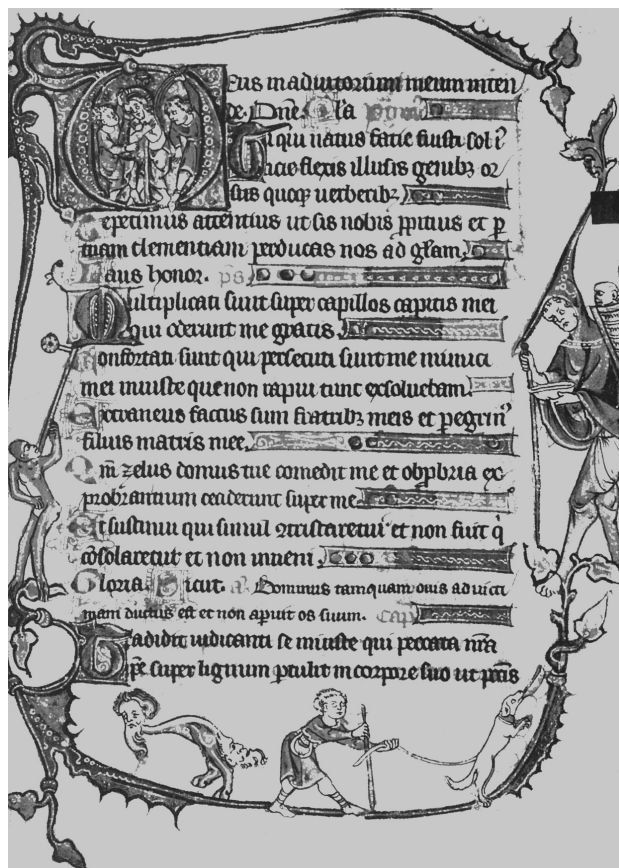 Deus in adiutorium meum inten
de. Dñe Gl'a ymn'
Qui natus facie fuisti sol i
facie flexis illusis genibꝫ or
sus quoqꝫ uerberibꝫ
Te petimus attentius ut sis nobis ppitius et p
tuam clementiam perducas nos ad glam
Laus honor. ps
Multiplicati sunt super capillos capitis mei
qui oderunt me gratis
Confortati sunt qui persecuti sunt me inimici
mei iniuste que non rapui tunc exsoluebam
Extraneus factus sum fratribꝫ meis et pegrin'
filius matris mee
Qm̄ zelus domus tue comedit me et obpbria ex
probrantium ceciderunt super me
Et sustinui qui simul ꝯtristaretur et non fuit q̇
ꝯsolaretur et non inueni
Gloria Sicut. a Dominus tamquam ouis ad uicti
mam ductus est et non aperuit os suum. Cap
Tradidit iudicanti se iniuste qui peccata nr̄a
ipe super lignum ptulit in corpore suo ut pcīs